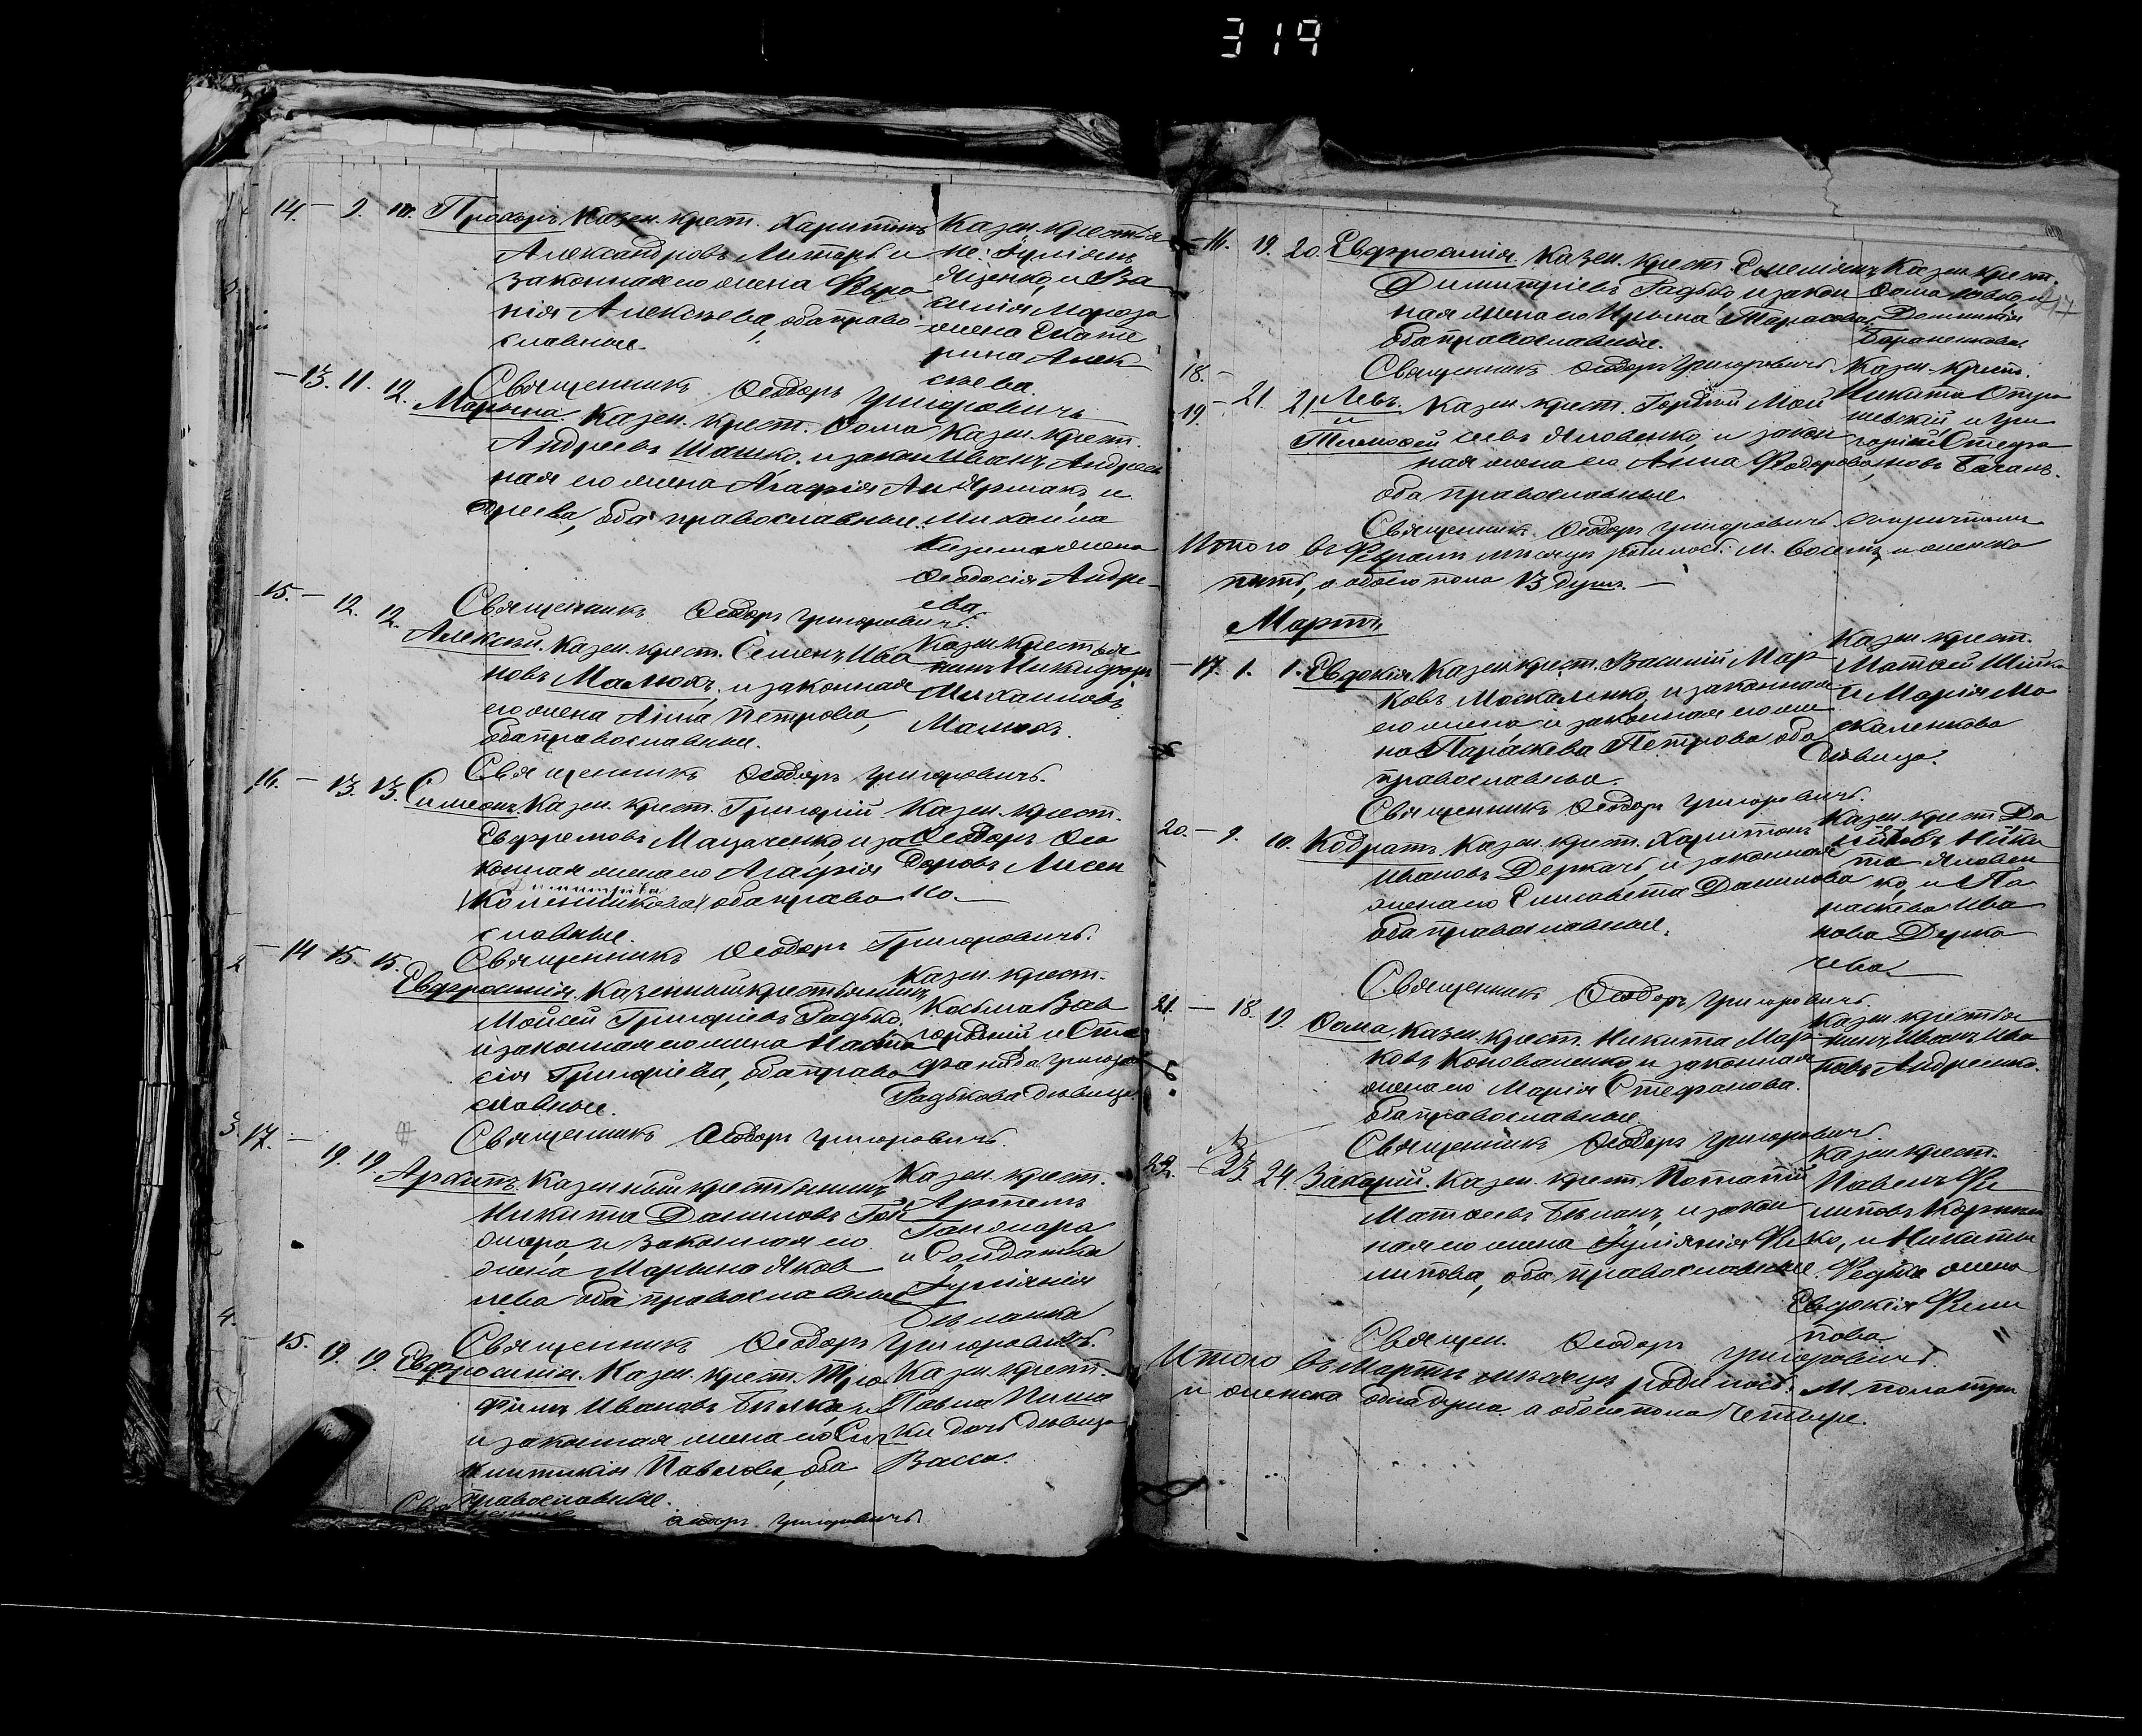 319
14. – 9. 10. Прохоръ. Казен. крест. Харитонъ
Александровъ Литарь и
законная его жена Февро
нія Алексѣева, оба право
славные.
Казен. крестья
не: Іуліанъ
Яценко, и Ва
силія Мороза
жена Екате
рина Алек
сѣева.
Священникъ Ѳеодоръ Григоровичъ
– 13. 11. 12. Марина. Казен. крест. Ѳома
Андреевъ Шашко, и закон
ная его жена Агафія Ан
дреева, оба православные.
Казен. крест.
Иванъ Андреевъ
Ярмакъ, и
Михаила
жена
Ѳеодосія Андре-
ева
Священникъ Ѳеодоръ Григоровичъ.
15. – 12. 12. Алексѣй. Казен. крест. Семенъ Ива
новъ Малюкъ, и законная
его жена Анна Петрова,
оба православные.
Казен. крестья
нинъ Никифоръ
Михаиловъ
Малюкъ.
Священникъ Ѳеодоръ Григоровичъ.
16. – 13. 13. Симеонъ. Казен. крест. Григорій
Ефремовъ Мащенко, и за
конная жена его Агафія
оба право
славные.
Казен. крест.
Ѳеодоръ Ѳео
доровъ Лисен
ко.
Священникъ Ѳеодоръ Григоровичъ.
– 14 15 15. Евфросинія. Казенный крестьянинъ
Мойсей Григоріевъ Радько,
и законная его жена Наста
сія Григоріева, оба право
славные.
Казен. крест.
Косьма Зав
городній и Сте
фанида Григор
Радькова дѣвица
Священникъ Ѳеодоръ Григоровичъ.
17. – 19. 19. Архипъ. Казенный крестьянинъ
Никита Даниловъ Гон
жара, и законная его
жена Марина Яков
лева оба православные
Казен. крест.
Артемъ
Гонжара,
и Солдатка
Іуліанія
Бѣланка
Священникъ Ѳеодоръ Григоровичъ.
– 15. 19. 19. Евфросинія. Казен. крест. Тро
фимъ Ивановъ Бѣлка,
и законная жена его Син
клитикія Павлова, оба
православные.
Казен. крест.
Павла Пища
ки дочь дѣвица
Васса.
Священникъ Ѳеодоръ Григоровичъ.
– 16. 19. 20. Евфросинія. Казен. крест. Емеліанъ
Димитріевъ Радько, и закон
ная жена его Ирина Тарасова
оба православные.
Казен. крест.
Ѳома и
Домникія
Бараненкова.
Священникъ Ѳеодоръ Григоровичъ.
18. –
19. – 21. 21. Левъ.
и
Тимоѳей
Казен. крест. Гордій Мой
сеевъ Яловенко, и закон
ная жена его Анна Ѳедорова,
оба православные.
Казен. крест.
Никита Отро
шевскій, и Гри
горій Стефа
новъ Баланъ.
Священникъ Ѳеодоръ Григоровичъ съ причтомъ
Итого въ Февралѣ мѣсяцѣ родилось: м. восемь, и женска
пять, а обоего пола 13 душъ. –
Мартъ
– 17. 1. 1. Евдокія. Казен. крест. Василій Мар
ковъ Москаленко, и законная
его жена и законная его же
на Параскева Петрова оба
православные.
Казен. крест.
Матѳей Шійка
и Марія Мо
скаленкова
дѣвица.
Священникъ Ѳеодоръ Григоровичъ.
20. – 9. 10. Кодратъ. Казен. крест. Харитонъ
Ивановъ Деркачъ, и законная
жена его Елисавета Данилова
оба православные.
Казен. крест. Да
ниловъ Ники
та Яловен
ко, и Па
раскева Ива
нова Дерка
чева
Священникъ Ѳеодоръ Григоровичъ.
21. – 18. 19. Ѳома. Казен. крест. Никита Мар
ковъ Коноваленко, и законная
жена его Марія Стефанова.
оба православные
Казен. крестья
нинъ Иванъ Ива
новъ Андреенко.
Священникъ Ѳеодоръ Григоровичъ.
22. – 23. 24. Захарій. Казен. крест. Потапій
Матѳеевъ Бѣланъ, и закон
ная его жена Іуліанія Фи
липова, оба православные.
Казен. крест.
Павелъ Фи
липовъ Корніен
ко, и Никиты
Редька жена
Евдокія Фили
пова
Священ. Ѳеодоръ Григоровичъ.
Итого въ Мартѣ мѣсяцѣ родилось: М. пола три
и женска одна душа. а обоего пола четыре.